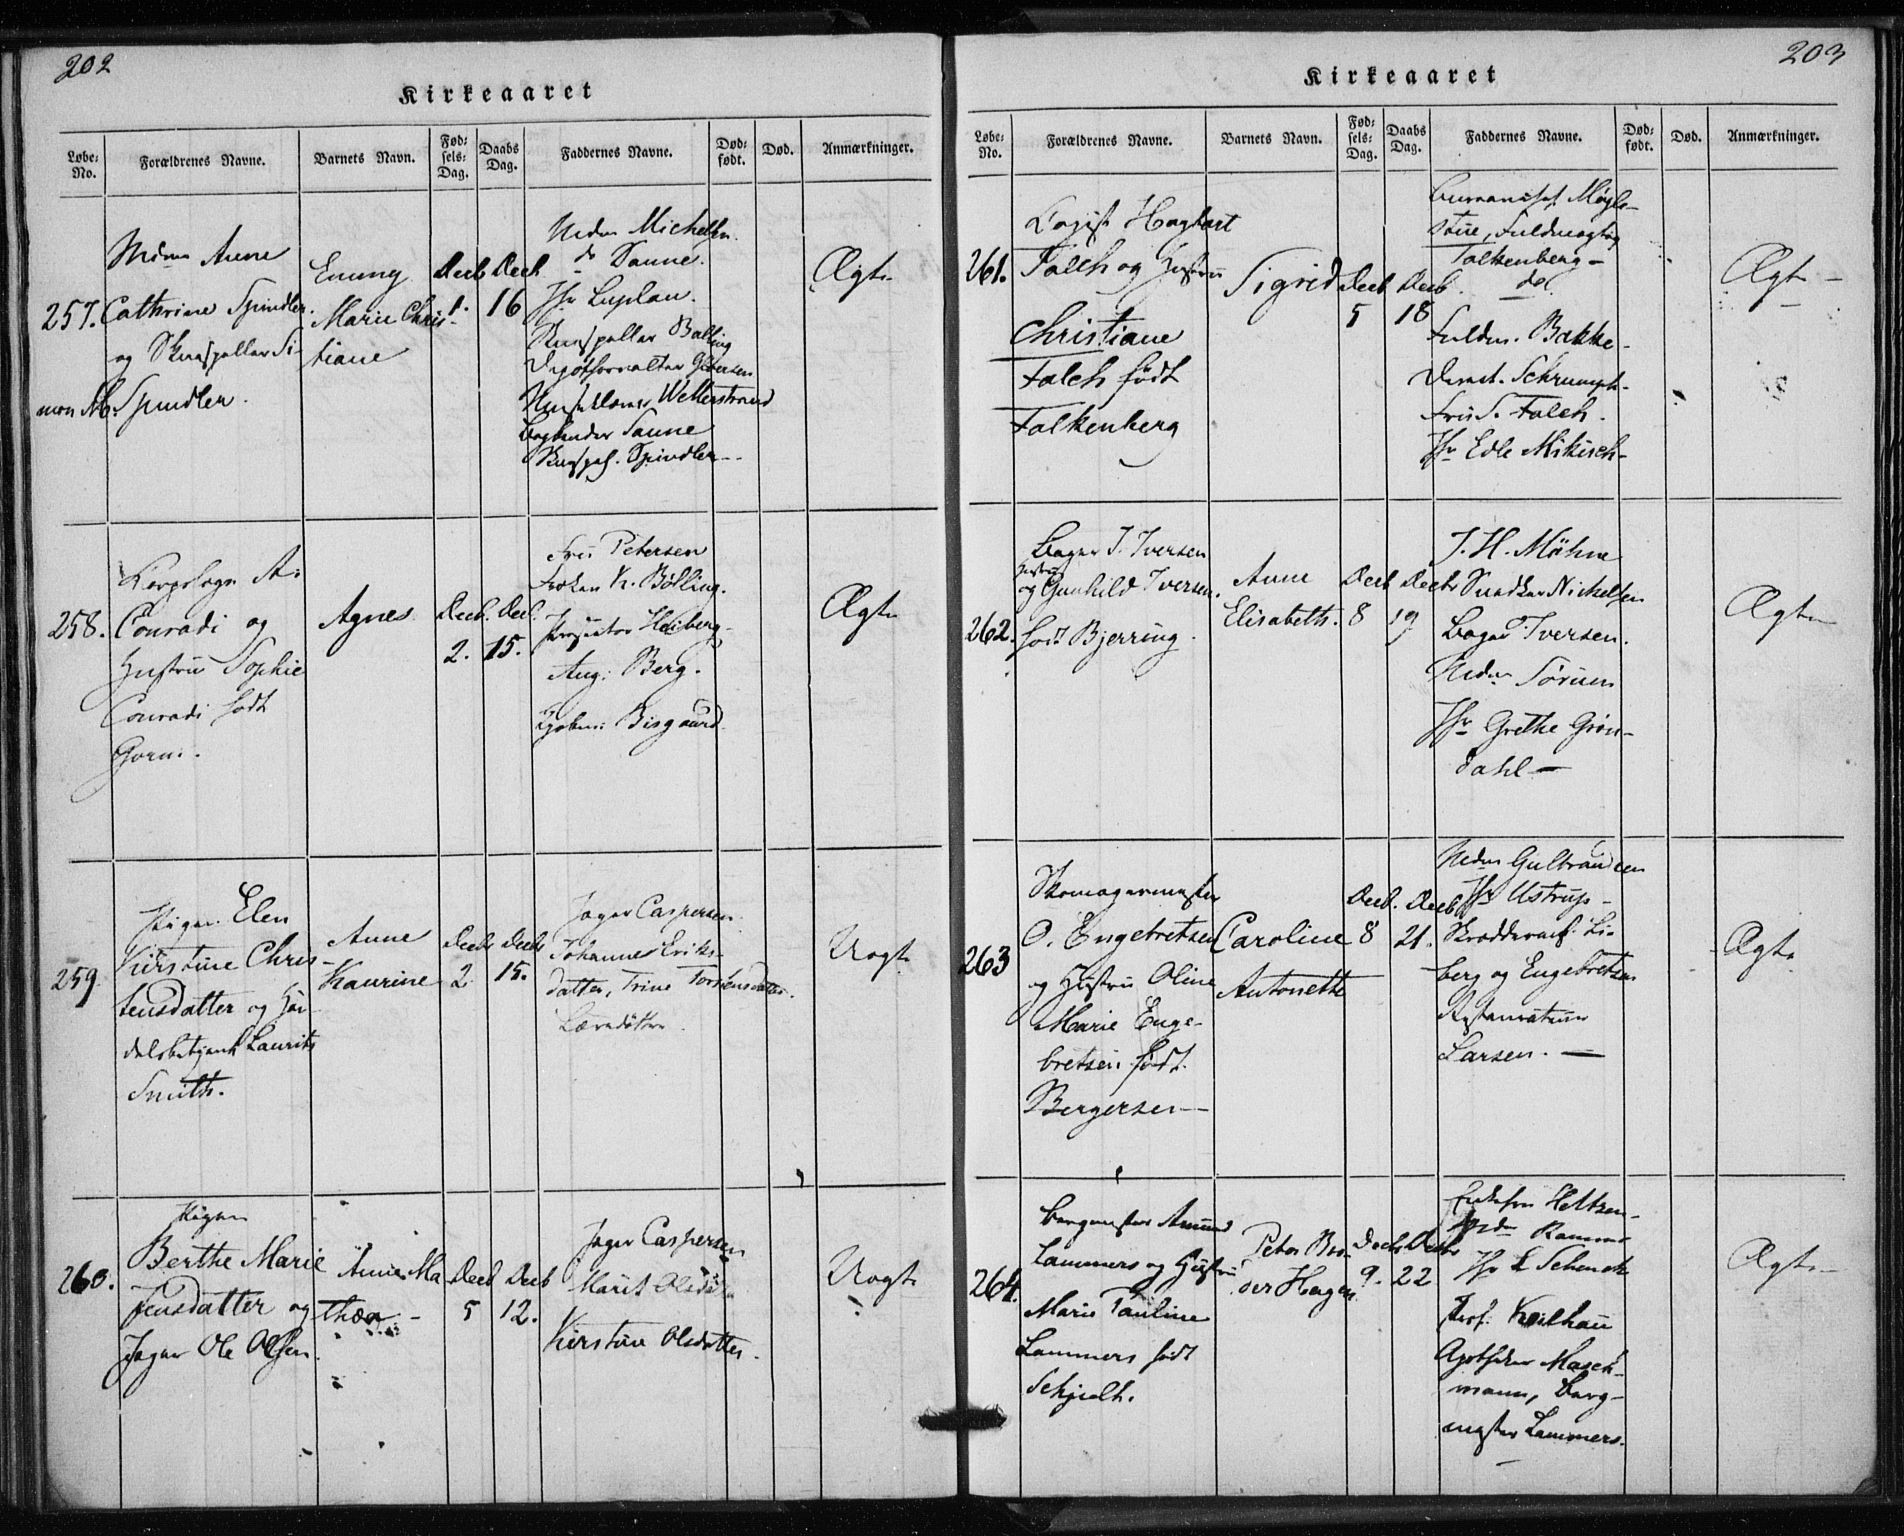 202
Kirkeaaret
Løbe-No. Forældrenes Navne. Barnets Navn. Fødsels-Dag. Daabs Dag. Faddernes Navne. Dødfødt. Død. Anmærkninger.
257.
Anne
Cathrine Spindler
og Skuespiller Si-
mon Spindler.
Emmy
Marie Chris-
tiane
Decb 1.
Decb 16
Michelsen
do Sanne.
Jfr Luplau.
Skuespiller Balling
Petersen
Wetterstrand
Sanne
Skuesp. Spindler
Ægte
258.
A.
Conradi og
Hustru Sophie
Conradi født
Agnes
Decb. 2.
Decb. 15.
Fru Petersen
Frøken K. Bølling.
Heiberg
Aug: Berg.
Bisgaard
Ægte
259
Pigen Elen
Kirstine Chris-
tensdatter og Han-
delsbetjent Laurits
Smith.
Anne
Kaurine
Decb 2.
Decbr 15.
Jager Caspersen
Johanne Eriks-
datter, Trine Torstensdatter.
Uægte
260.
Pigen
Berthe Marie
Jensdatter og
Jager Ole Olsen.
Anne Ma-
thea
Decb 5
Decb 12.
Jager Caspersen
Marit
Kirstine Olsdatter.
Uægte
203
Kirkeaaret
Løbe-No. Forældrenes Navne. Barnets Navn. Fødsels-Dag. Daabs Dag. Faddernes Navne. Dødfødt. Død. Anmærkninger.
261.
Logist Hagbart
Falch og Hustru
Christiane
Falch født
Falkenberg
Sigrid
Decb 5
Decb. 18
Møgle-
stue, Fuldmægtig
Falkenberg
do
Fuldm. Bakke
Schrumpf
Fru S. Falch.
Jfr Edle
Ægte
262.
Bager J. Iversen
Hustru
og Gunhild Iversen
født Bjerring.
Anne
Elisabeth.
Decb 8
Decbr 19
J. H. Møhne
Snedker Michelsen
Bager Iversen.
Jfr Grethe Grøn-
dahl
Ægte
263
Skomagermester
O. Engebretsen
og Hustru Oline
Marie Enge-
bretsen født
Bergersen
Caroline
Antonette
Decb. 8
Decb 21.
Gulbrandsen
Jfr Ustrup
Li-
berg og Engebretsen
Restaurateur
Larsen.
Ægte
264.
Bergmester Amund
Lammers og Hustru
Marie Pauline
Lammers født
Schjelh.
Peter
der Hagen
Decb 9.
Decbr 22
Heltzen
Jfr L Schenck
Prof. Keilhau
Apotheker Masch-
mann, Berg-
mester Lammers.
Ægte